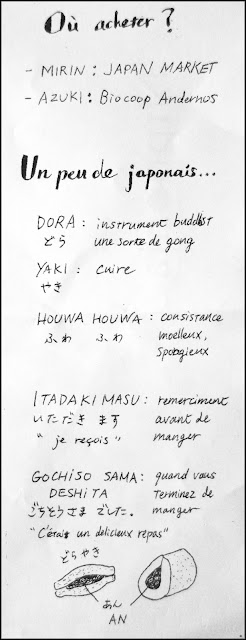 Où acheter ?
- MIRIN : JAPAN MARKET
- AZUKI : Biocoop Andernos
Un peu de japonais...
DORA : instrument buddist
どら une sorte de gong
YAKI : cuire
やき
HOUWA HOUWA : consistance
ふわ ふわ moelleux,
Spobgieux
ITADAKI MASU : remerciment
いただき ます avant de
" je reçois " manger
GOCHISO SAMA : quand vous
DESHITA terminez de
ごちそうさま でした. manger
"C'était un délicieux repas"
どらやき
あん
AN